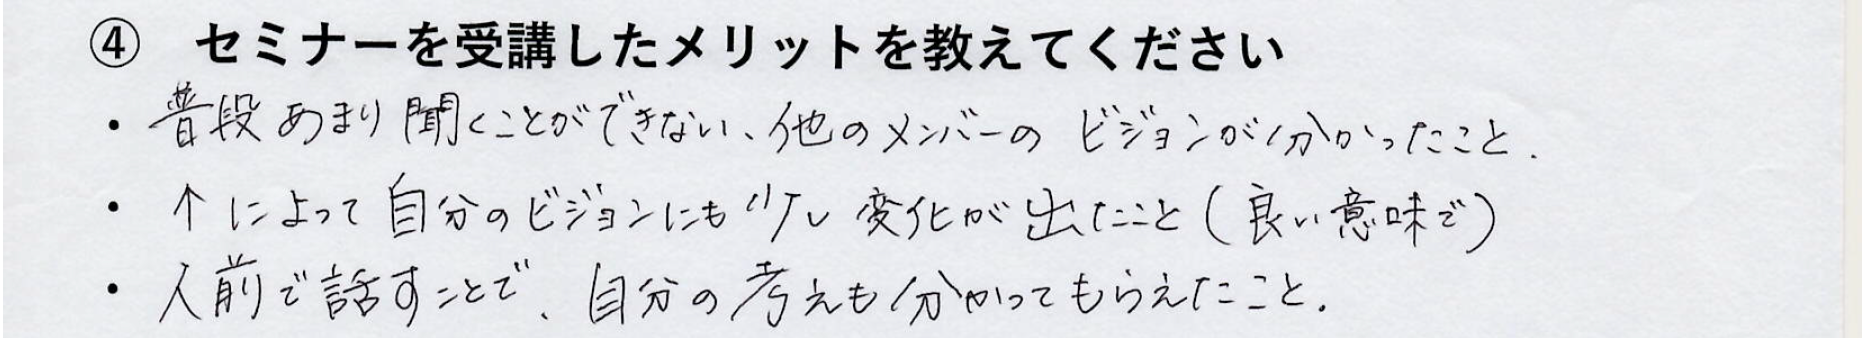 ④ セミナーを受講したメリットを教えてください
・普段あまり聞くことができない、他のメンバーのビジョンが分かったこと.
・↑によって自分のビジョンにも少し変化が出たこと(良い意味で)
・人前で話すことで、自分の考えも分かってもらえたこと.